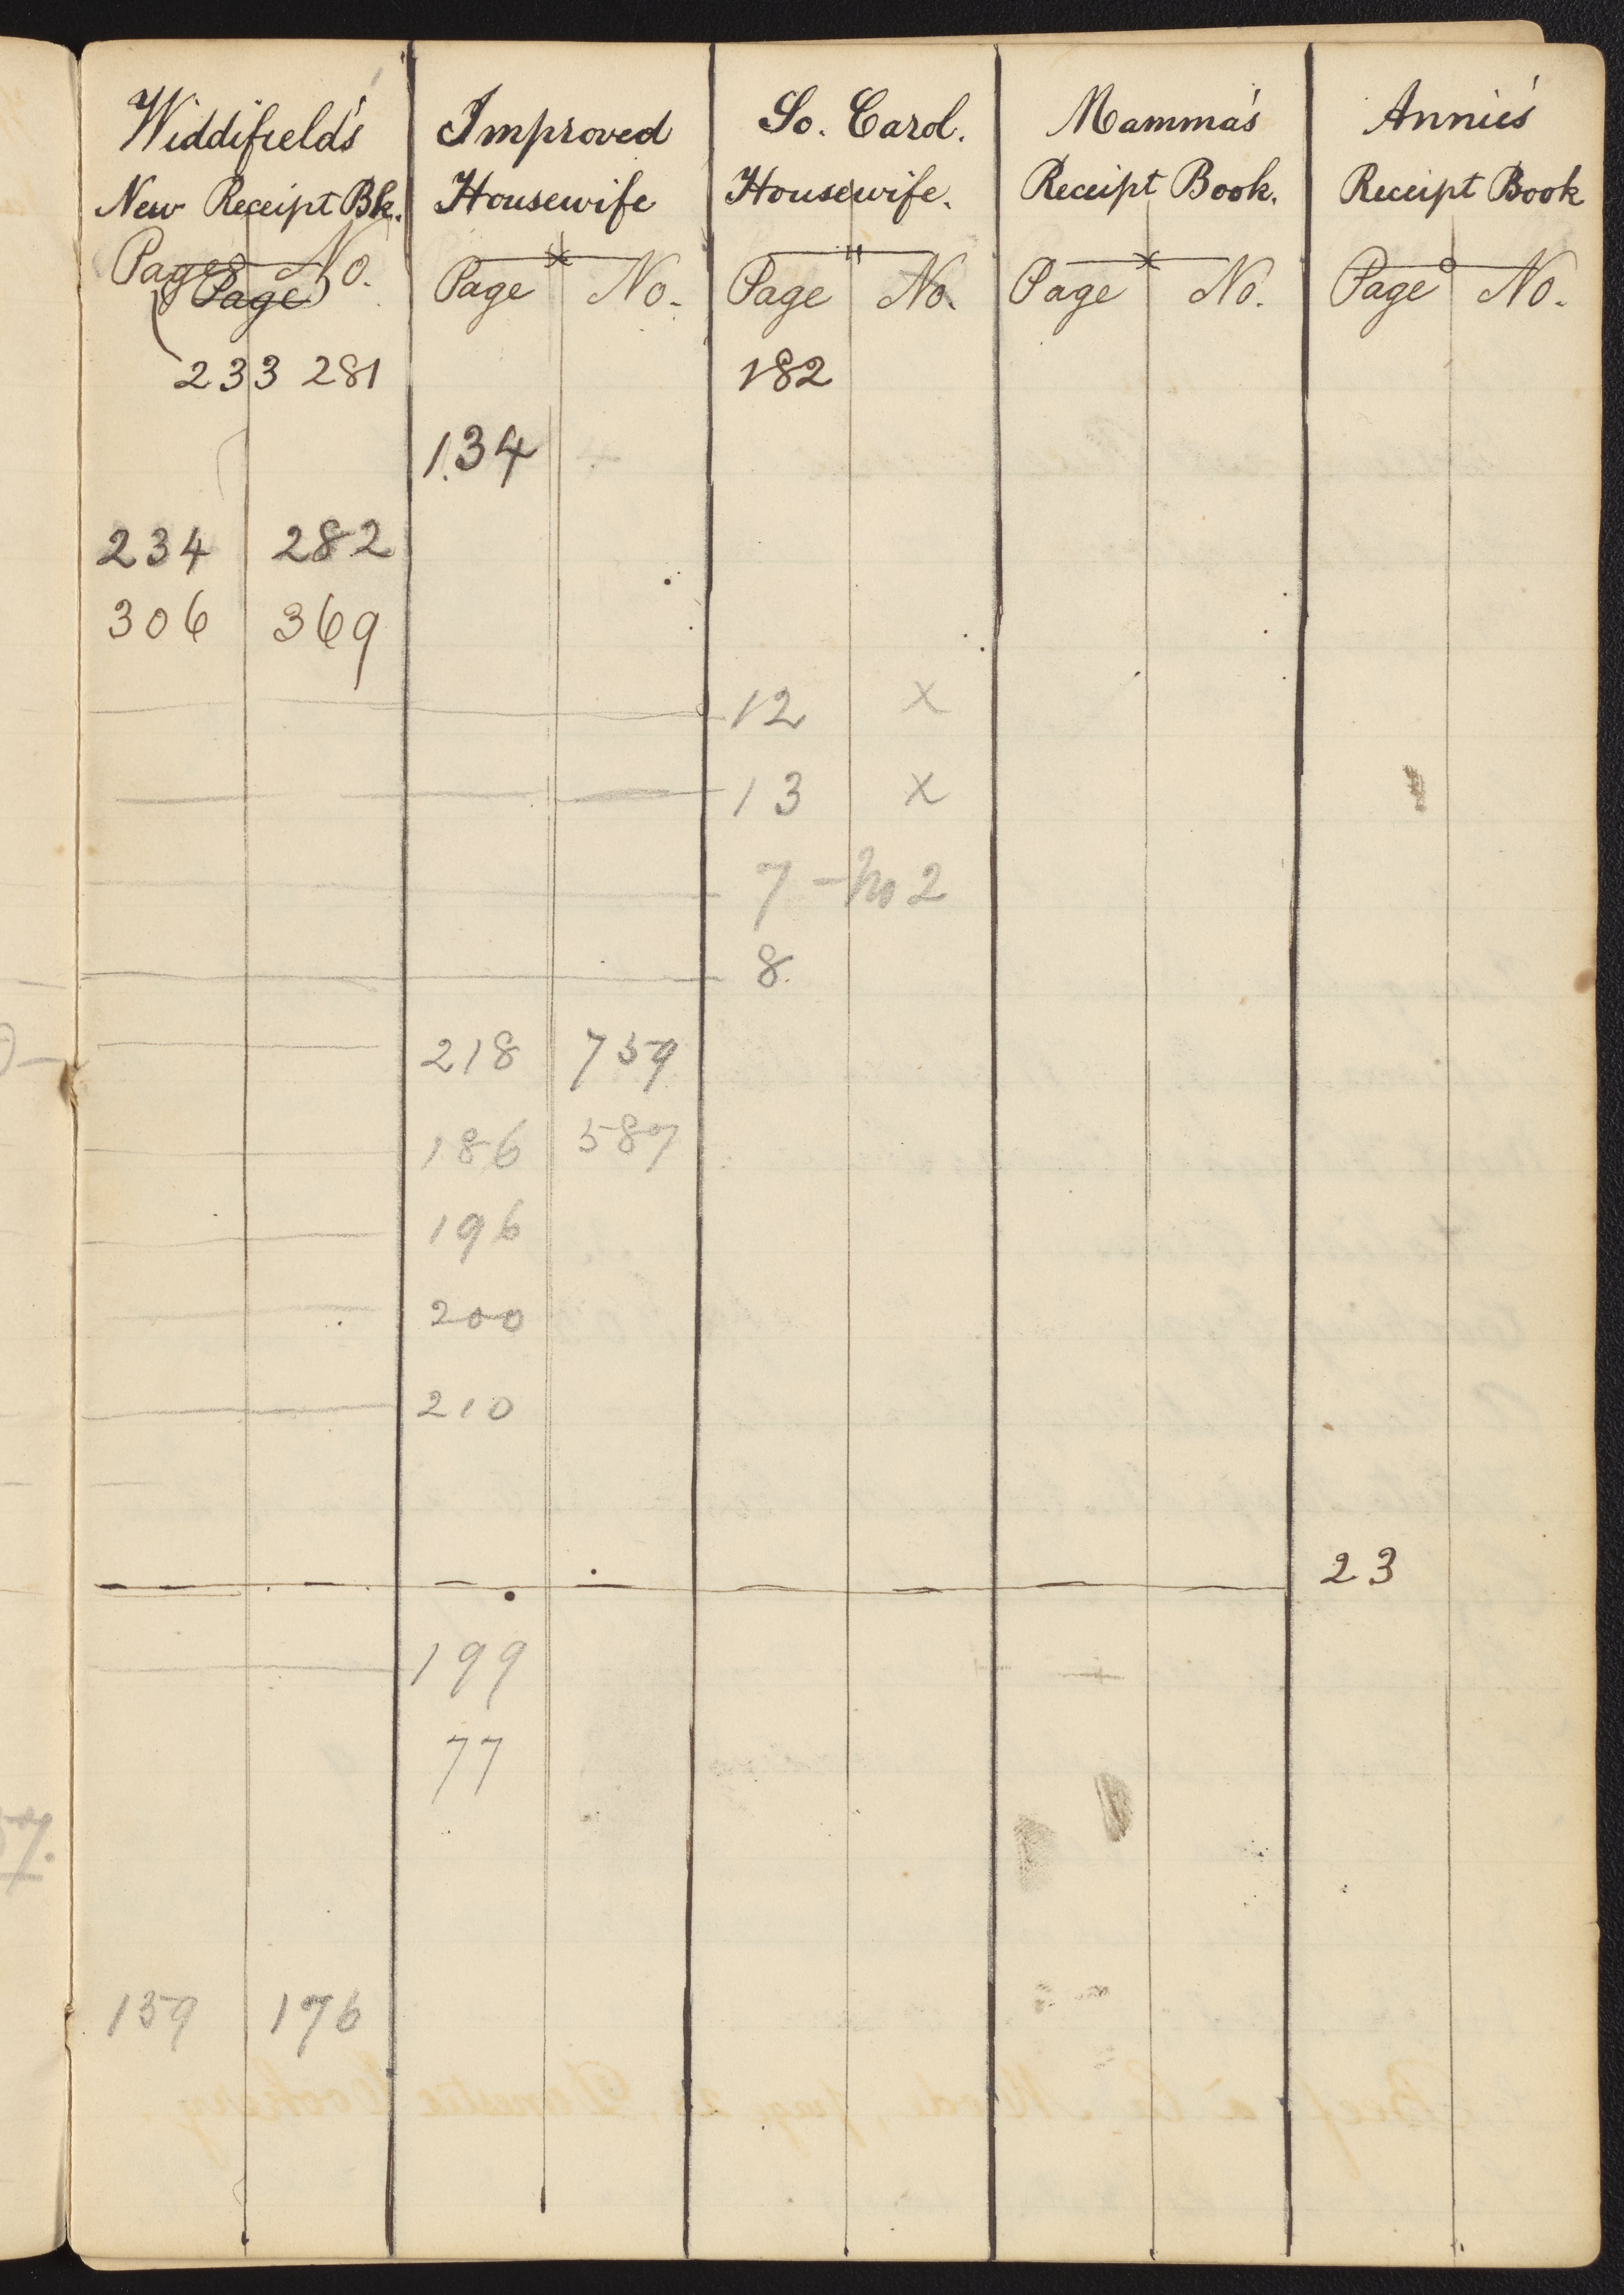 Widdifield's Improved So. Carol. Mamma's Annie's
New Receipt Bk. Housewife Housewife. Receipt Book. Receipt Book
Page No. Page No. Page No. Page No. Page No.
Page
233 281 182
134
234 282
306 369
12 x
13 x
7 - No 2
8.
218 759
186 587
196
200
210
23
199
77
57.
159 176